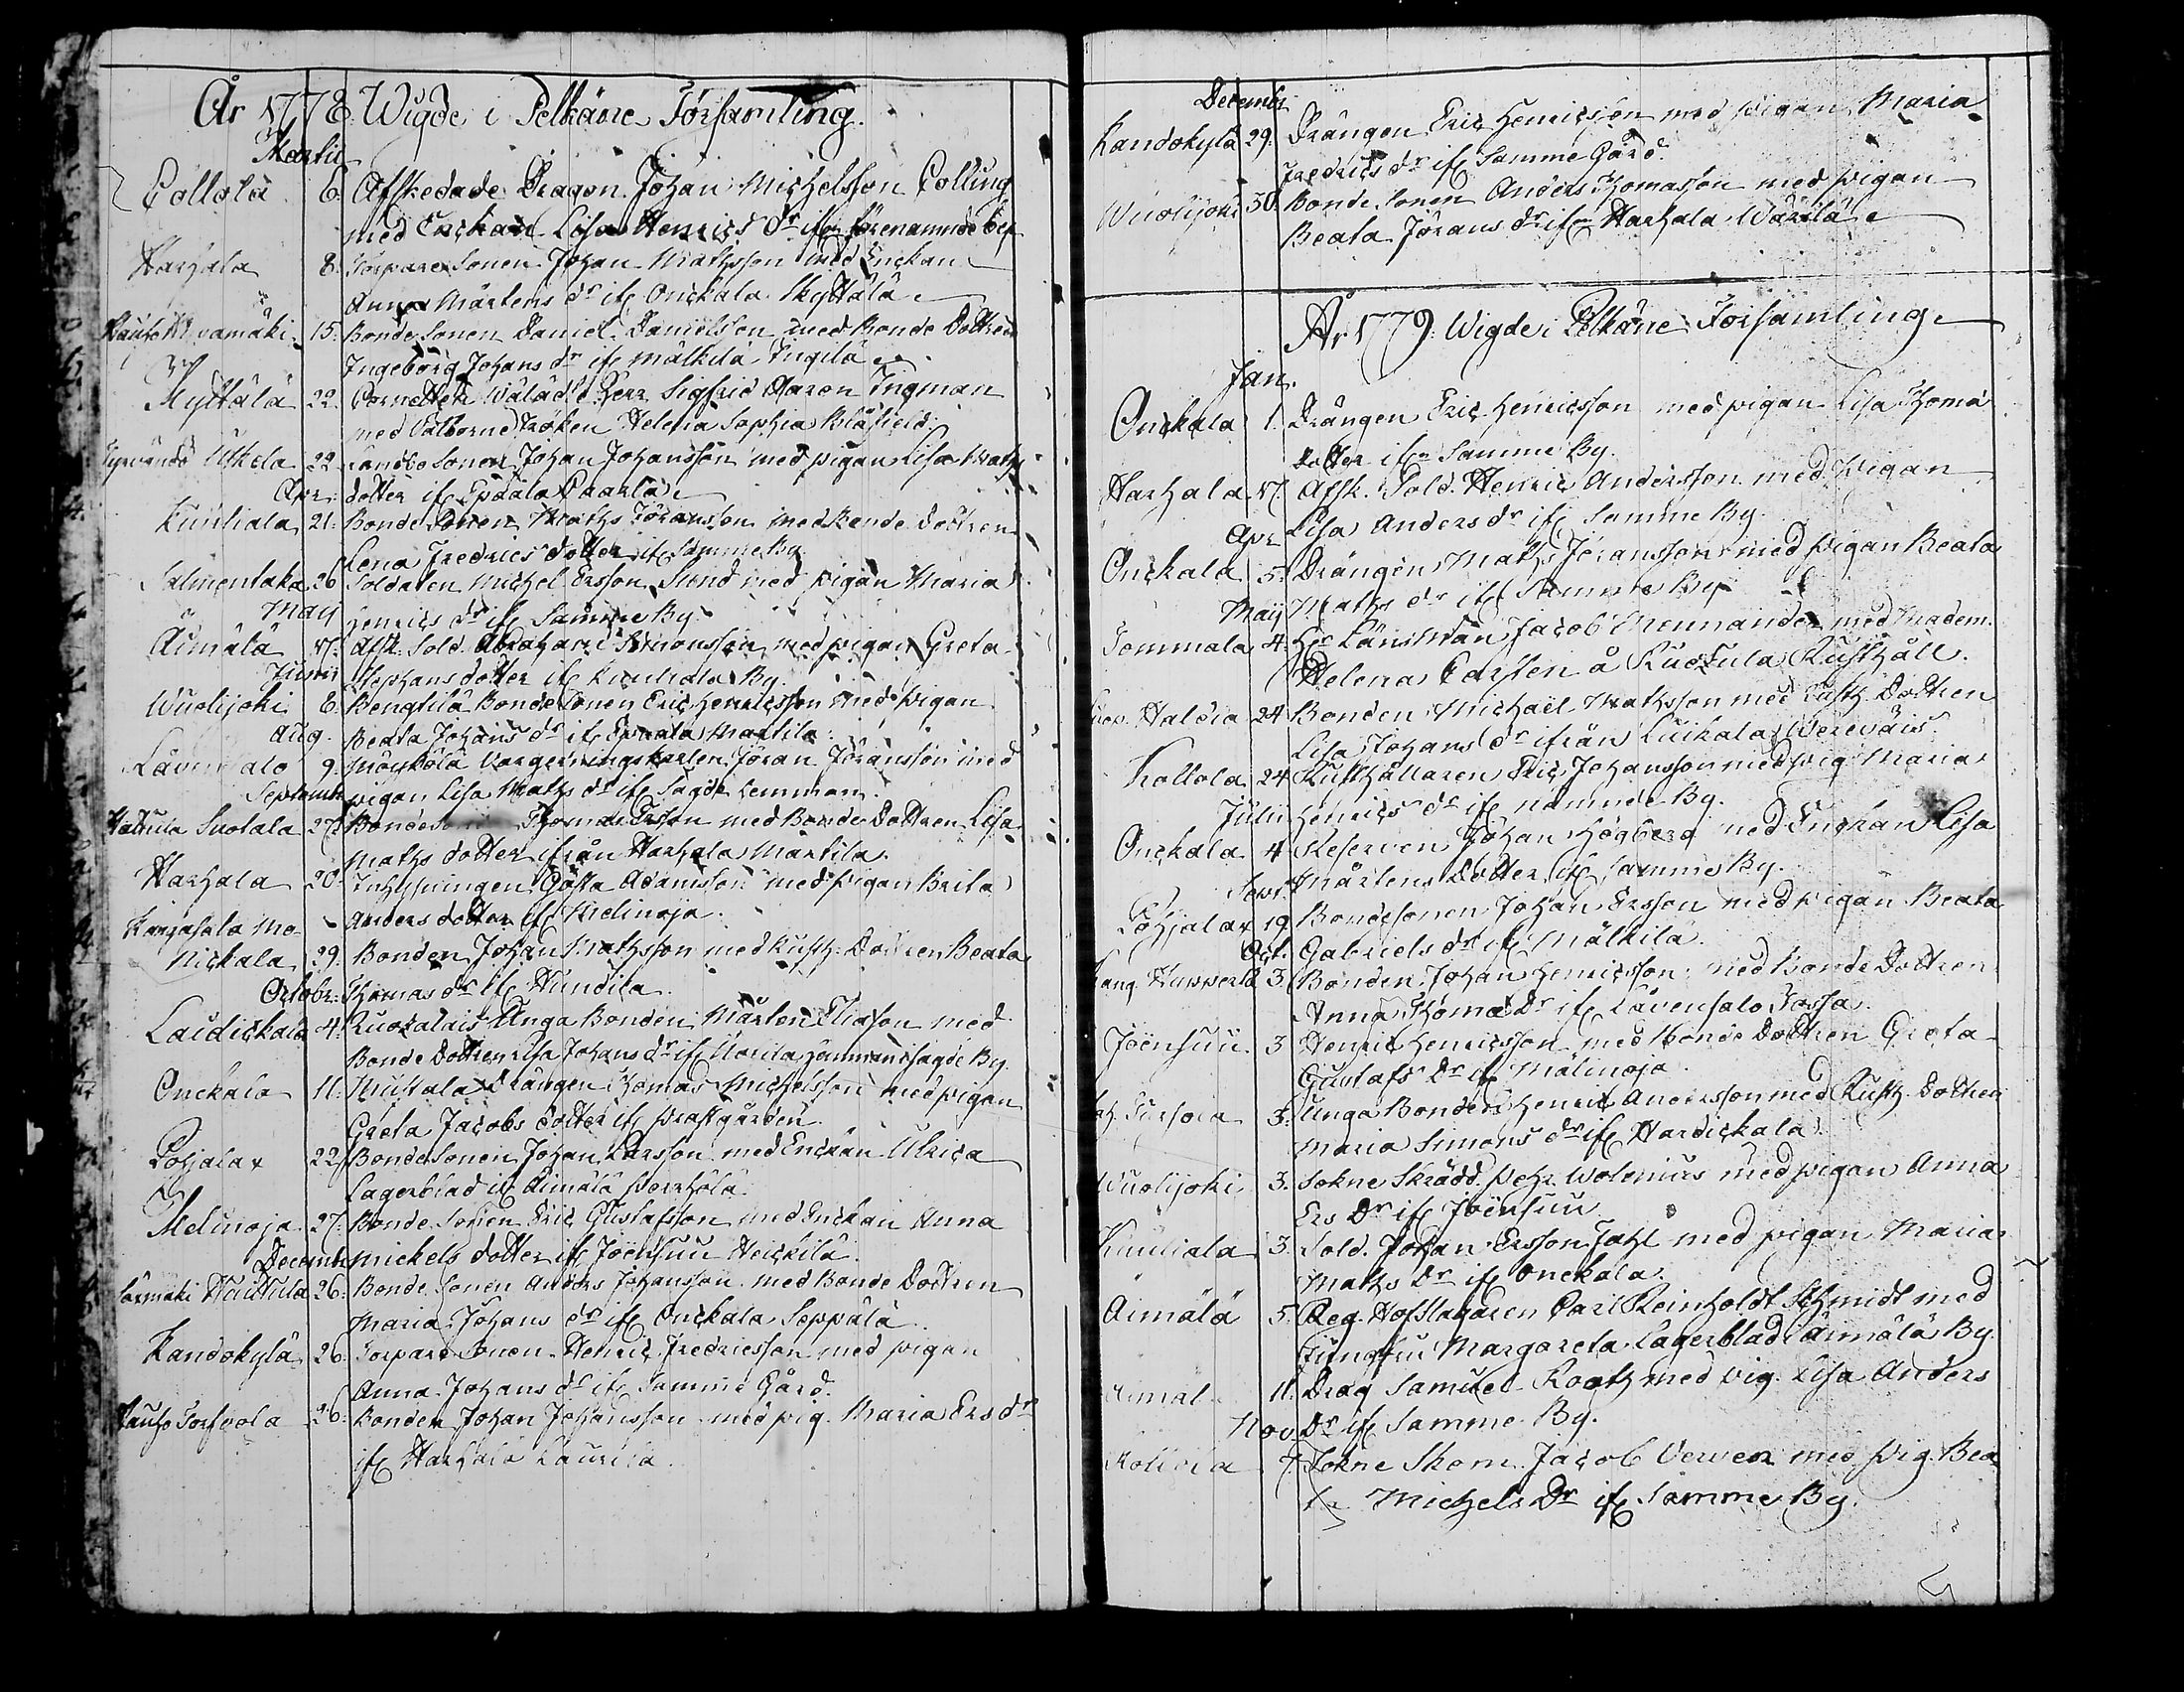 År 1778 Wigde i Pelkäne Församling.
Martii
Collola 6. Afskedade Dragon Johan Michelsson Colling
med Enckan Lisa Henrics dr if förenamnde by
Harhala 8. Torpare Sonen Johan Mathsson med Enckan
Anna Mårtens dr if Onckala Skyttälä
15. Bonde Sonen Daniel Danielsson med Bonde Dottren
Ingeborg Johans dr if Mälkilä
Myttälä 22. Cornetten Wälädle Herr Sigfrid Aaron Tingman
med Välborne Fröken Helena Sophia Blåfield
22 Landbo Sonen Johan Johansson med pigan Lisa Maths
Apr. dotter if Epaala Paarla
Kuuliala 21. Bonde Sonen Maths Jöransson med Bonde Dottren
Lena Fredrics dotter if Samme By.
Salmentaka 26 Soldaten Michel Ersson Sund med pigan Maria
May Henrics dr if Samme By.
Äimälä 17. Afsk. Sold. Abraham Simonsson med pigan Greta
Junii Stephans dotter if Kuuliala By.
Wuolijoki 6. Bengtilä Bonde Sonen Eric Henricsson med pigan
Aug. Beata Johans dr if Epaala Martila.
9. Jöran Jöransson med
Septembr pigan Lisa Maths dr if Sagde
Suotala 27. Bonde Thomas Ersson med Bonde Dottren Lisa
Maths dotter ifrån Harhala Martila.
Harhala 20. Inhysingen Gösta Adamsson med pigan Brita
Kangasala Anders dotter if Melinoja.
Nickala 29. Bonden Johan Mathsson med Rusth. Dottren Beata
Octobr. Thomas dr if Hundila.
Laidickala 4. Unga Bonden Mårten Eliasson med
Bonde Dottren Lisa Johans dr if By.
Onckala 11. Drängen Thomas Michelsson med pigan
Greta Jacobs dotter if prästgården
Pohjalax 22. Bonde Sonen Johan Larsson med Enckan Ulrica
Lagerblad if Äimälä Perhölä.
Melinoja 27. Bonde Sonen Eric Gustafsson med Enckan Anna
Decembr. Mickels dotter if Joensuu Heickilä.
26. Bonde Sonen Anders Johansson med Bonde Dottren
Maria Johans dr if Onckala Seppälä
Kandokylä 26. Torpare Sonen Henric Fredricsson med pigan
Anna Johans dr if Samme Gård.
26. Bonden Johan Johansson med pig. Maria Ers dr
if Harhala Laurila.
Decembr.
Kandokylä 29. Drängen Eric Henricsson med pigan Maria
Fredrics dr if Samme Gård.
Wuolijoki 30. Bonde Sonen Anders Thomasson med pigan
Beata Jörans dr if Harhala Wärilä
År 1779. Wigde i Pelkäne Församling
Jan.
Onckala 1. Drängen Eric Henricsson med pigan Lisa Thomæ
dotter if Samme By.
Harhala 17. Afsk. Sold. Henric Andersson med Pigan
Apr Lisa Anders dr if Samme By
Onckala 5. Drängen Maths Jöransson med pigan Beata
Maij Maths dr if Samme By
Tommala 4. Hr Länsman Jacob Mennander med Madem.
Helena Carlsen å Rusthåll.
Haldia 24 Bonden Michael Mathsson med Rusth. Dottren
Lisa Johans dr ifrån Luikala
Kollola 24 Rusthållaren Eric Johansson med pig. Maria
Julii Henrics dr if nämnde By.
Onckala 4 Reserven Johan Högberg med Enckan Lisa
Sept. Mårtens Dotter if Samme By.
Pohjalax 19 Bondesonen Johan Ersson med pigan Beata
Oct. Gabriels dr if Mälkilä.
Kang. 3. Bonden Johan Henricsson med Bonde Dottren
Anna Thomæ Dr if Lävensalo
Joensuu 3 Henric Henricsson med Bonde Dottren Greta
Gustafs Dr if Mälinoja.
3. Unga Bonden Henric Andersson med Rusth. Dottren
Maria Simons dr if Hardickala.
Wuolijoki 3. Sokne Skrädd. Pehr Wolenius med pigan Anna
Ers Dr if Joensuu
Kuuliala 3. Sold. Johan Ersson Fahl med pigan Maria
Maths Dr if Onckala.
Äimälä 5. Reg. Hofslagaren Carl Reinholdt Schmidt med
Jungfru Margareta Lagerblad i Äimälä By.
11. Drag Samuel Rooth med pig. Lisa Anders
Nov. Dr if Samme By.
7. Sokne Skom. Jacob Verven med Pig. Bea
ta Michels Dr if Samme By.